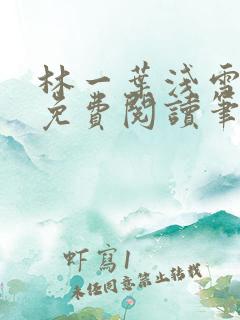 林一葉浅雪
免費閱讀筆
虾寫1
未经同意禁止转载